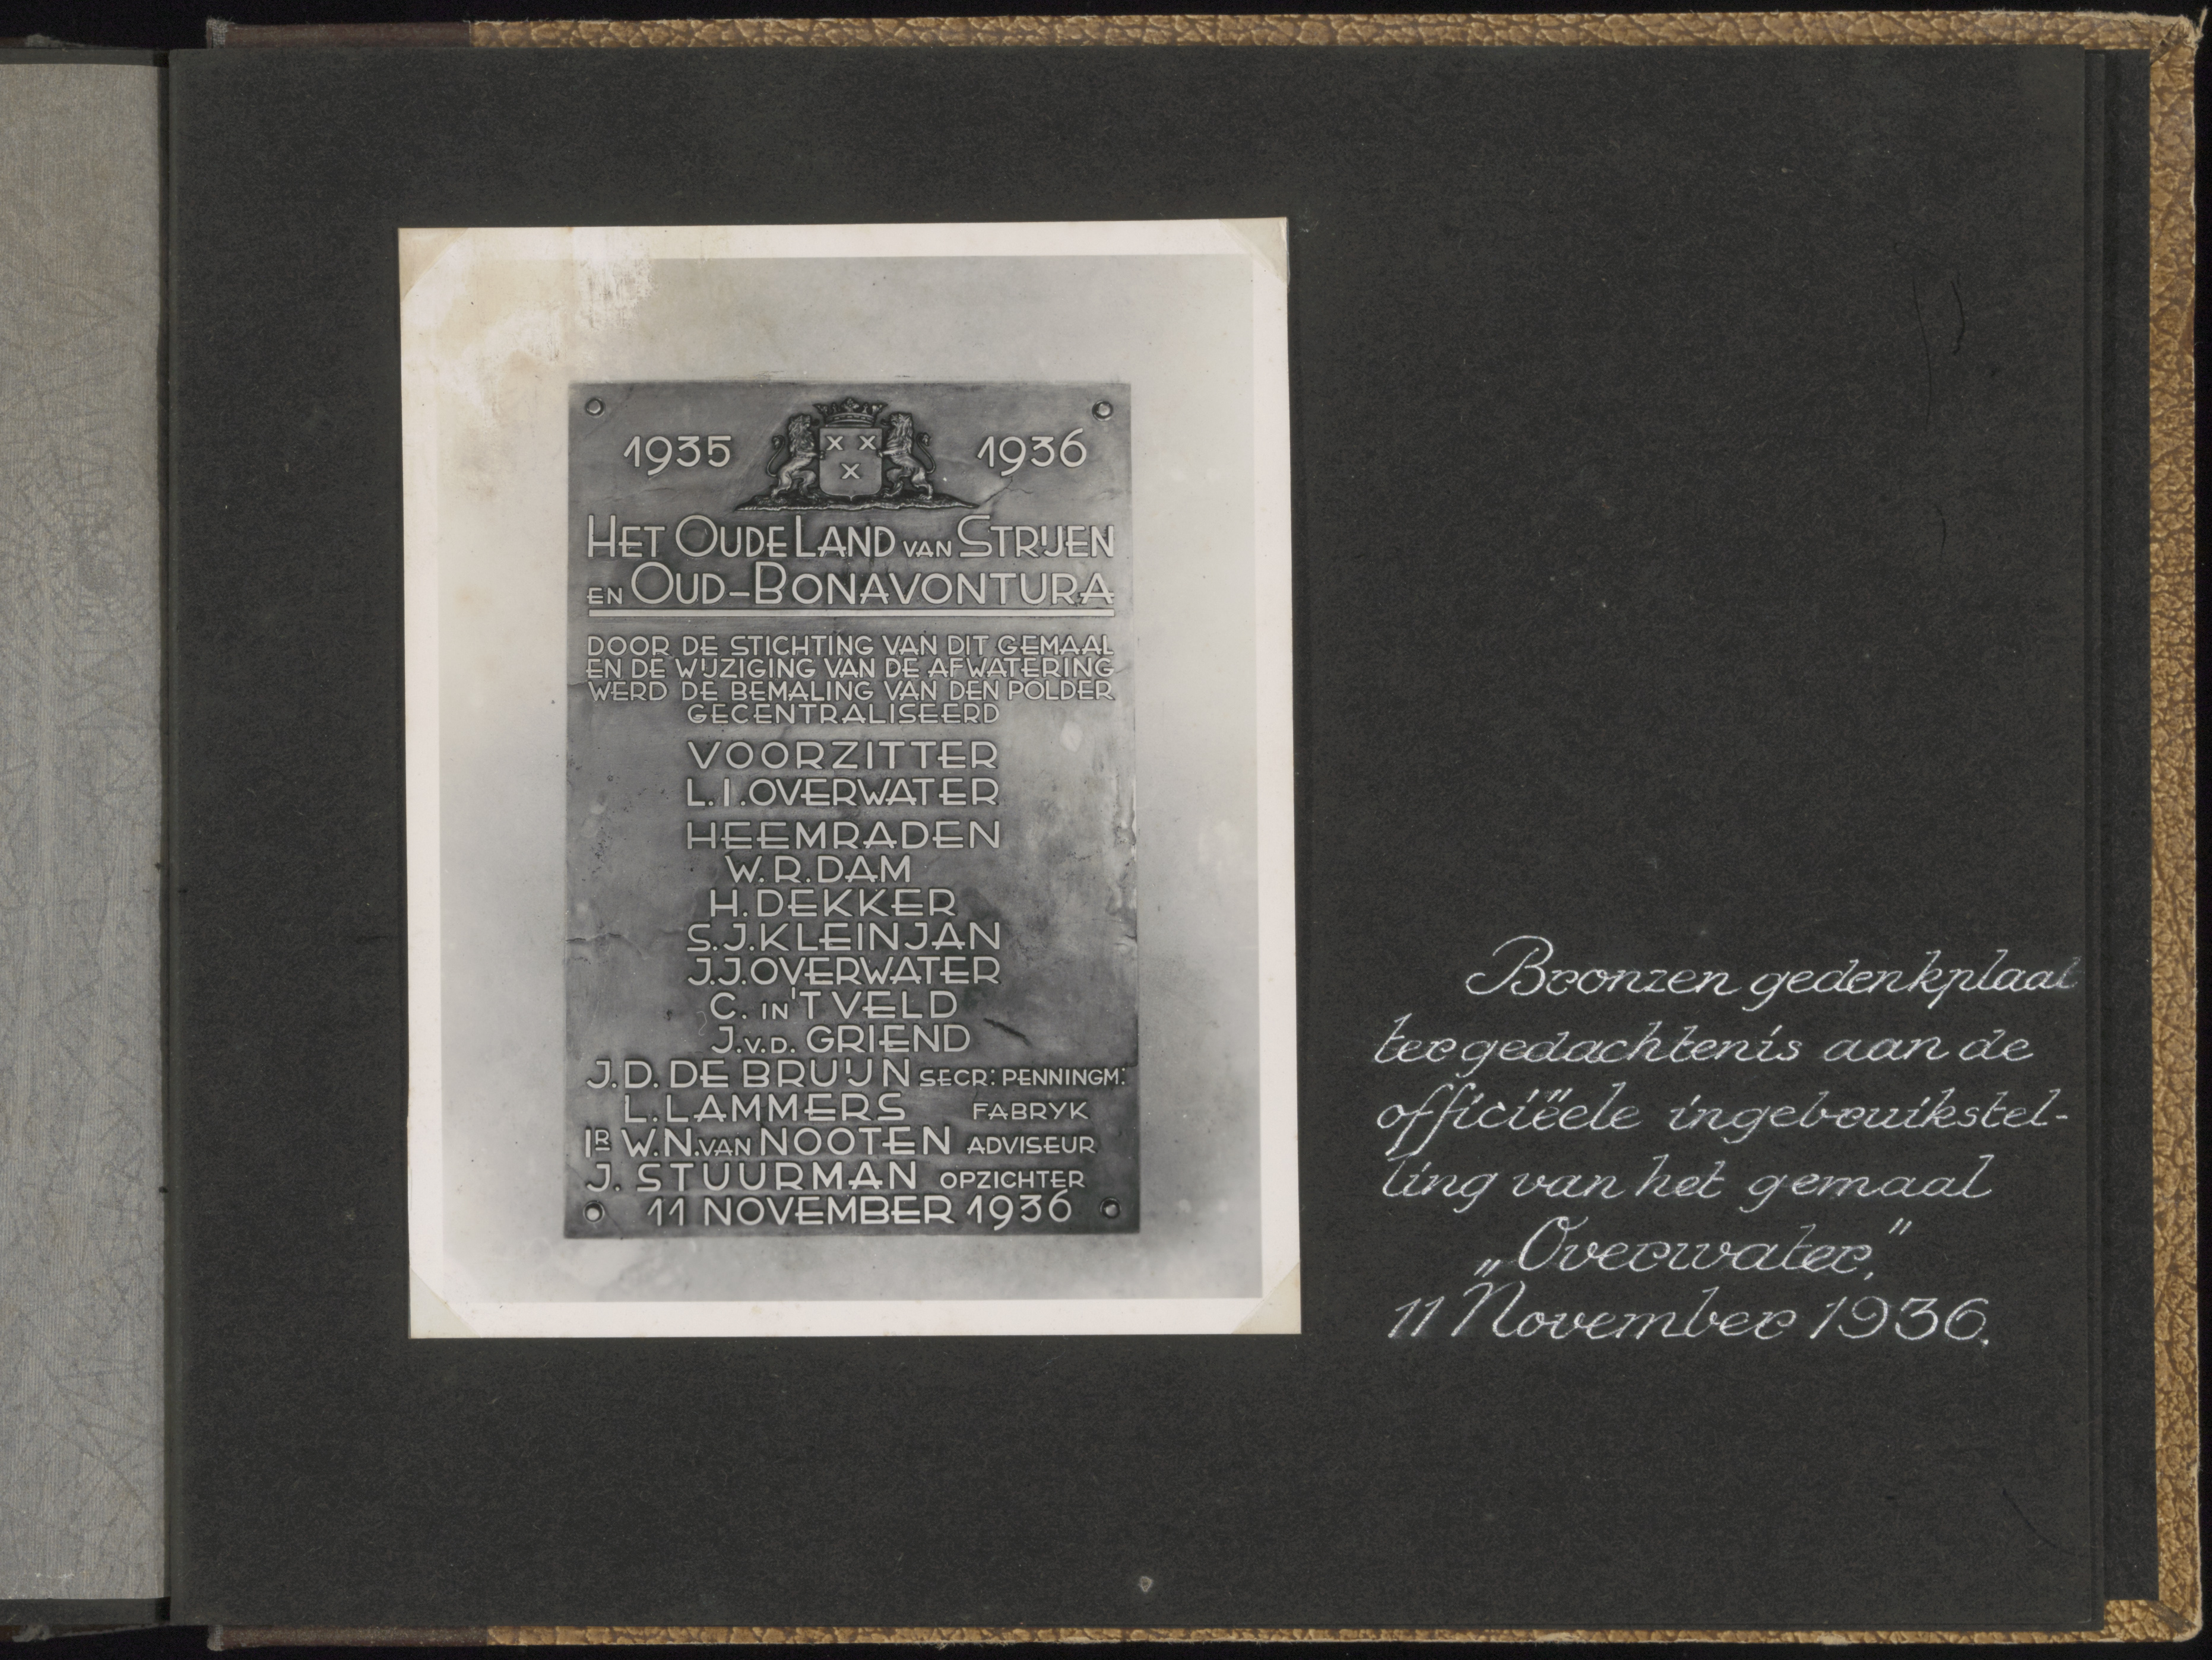 1935 1936
HET OUDE LAND VAN STRIJEN
EN OUD-BONAVONTURA
DOOR DE STICHTING VAN DIT GEMAAL
EN DE WIJZIGING VAN DE AFWATERING
WERD DE BEMALING VAN DEN POLDER
GECENTRALISEERD
VOORZITTER
L.I.OVERWATER
HEEMRADEN
W.R.DAM
H.DEKKER
S.J.KLEINJAN
J.J.OVERWATER
C. IN'T VELD
J.V.D. GRIEND
J.D. DE BRUIJN SECR: PENNINGM:
L.LAMMERS FABRYK
IR W.N.VAN NOOTEN ADVISEUR
J. STUURMAN OPZICHTER
11 NOVEMBER 1936
Bronzen gedenkplaat
ter gedachtenis aan de
officiëele ingebruikstel-
ling van het gemaal
„Overwater,"
11 November 1936.